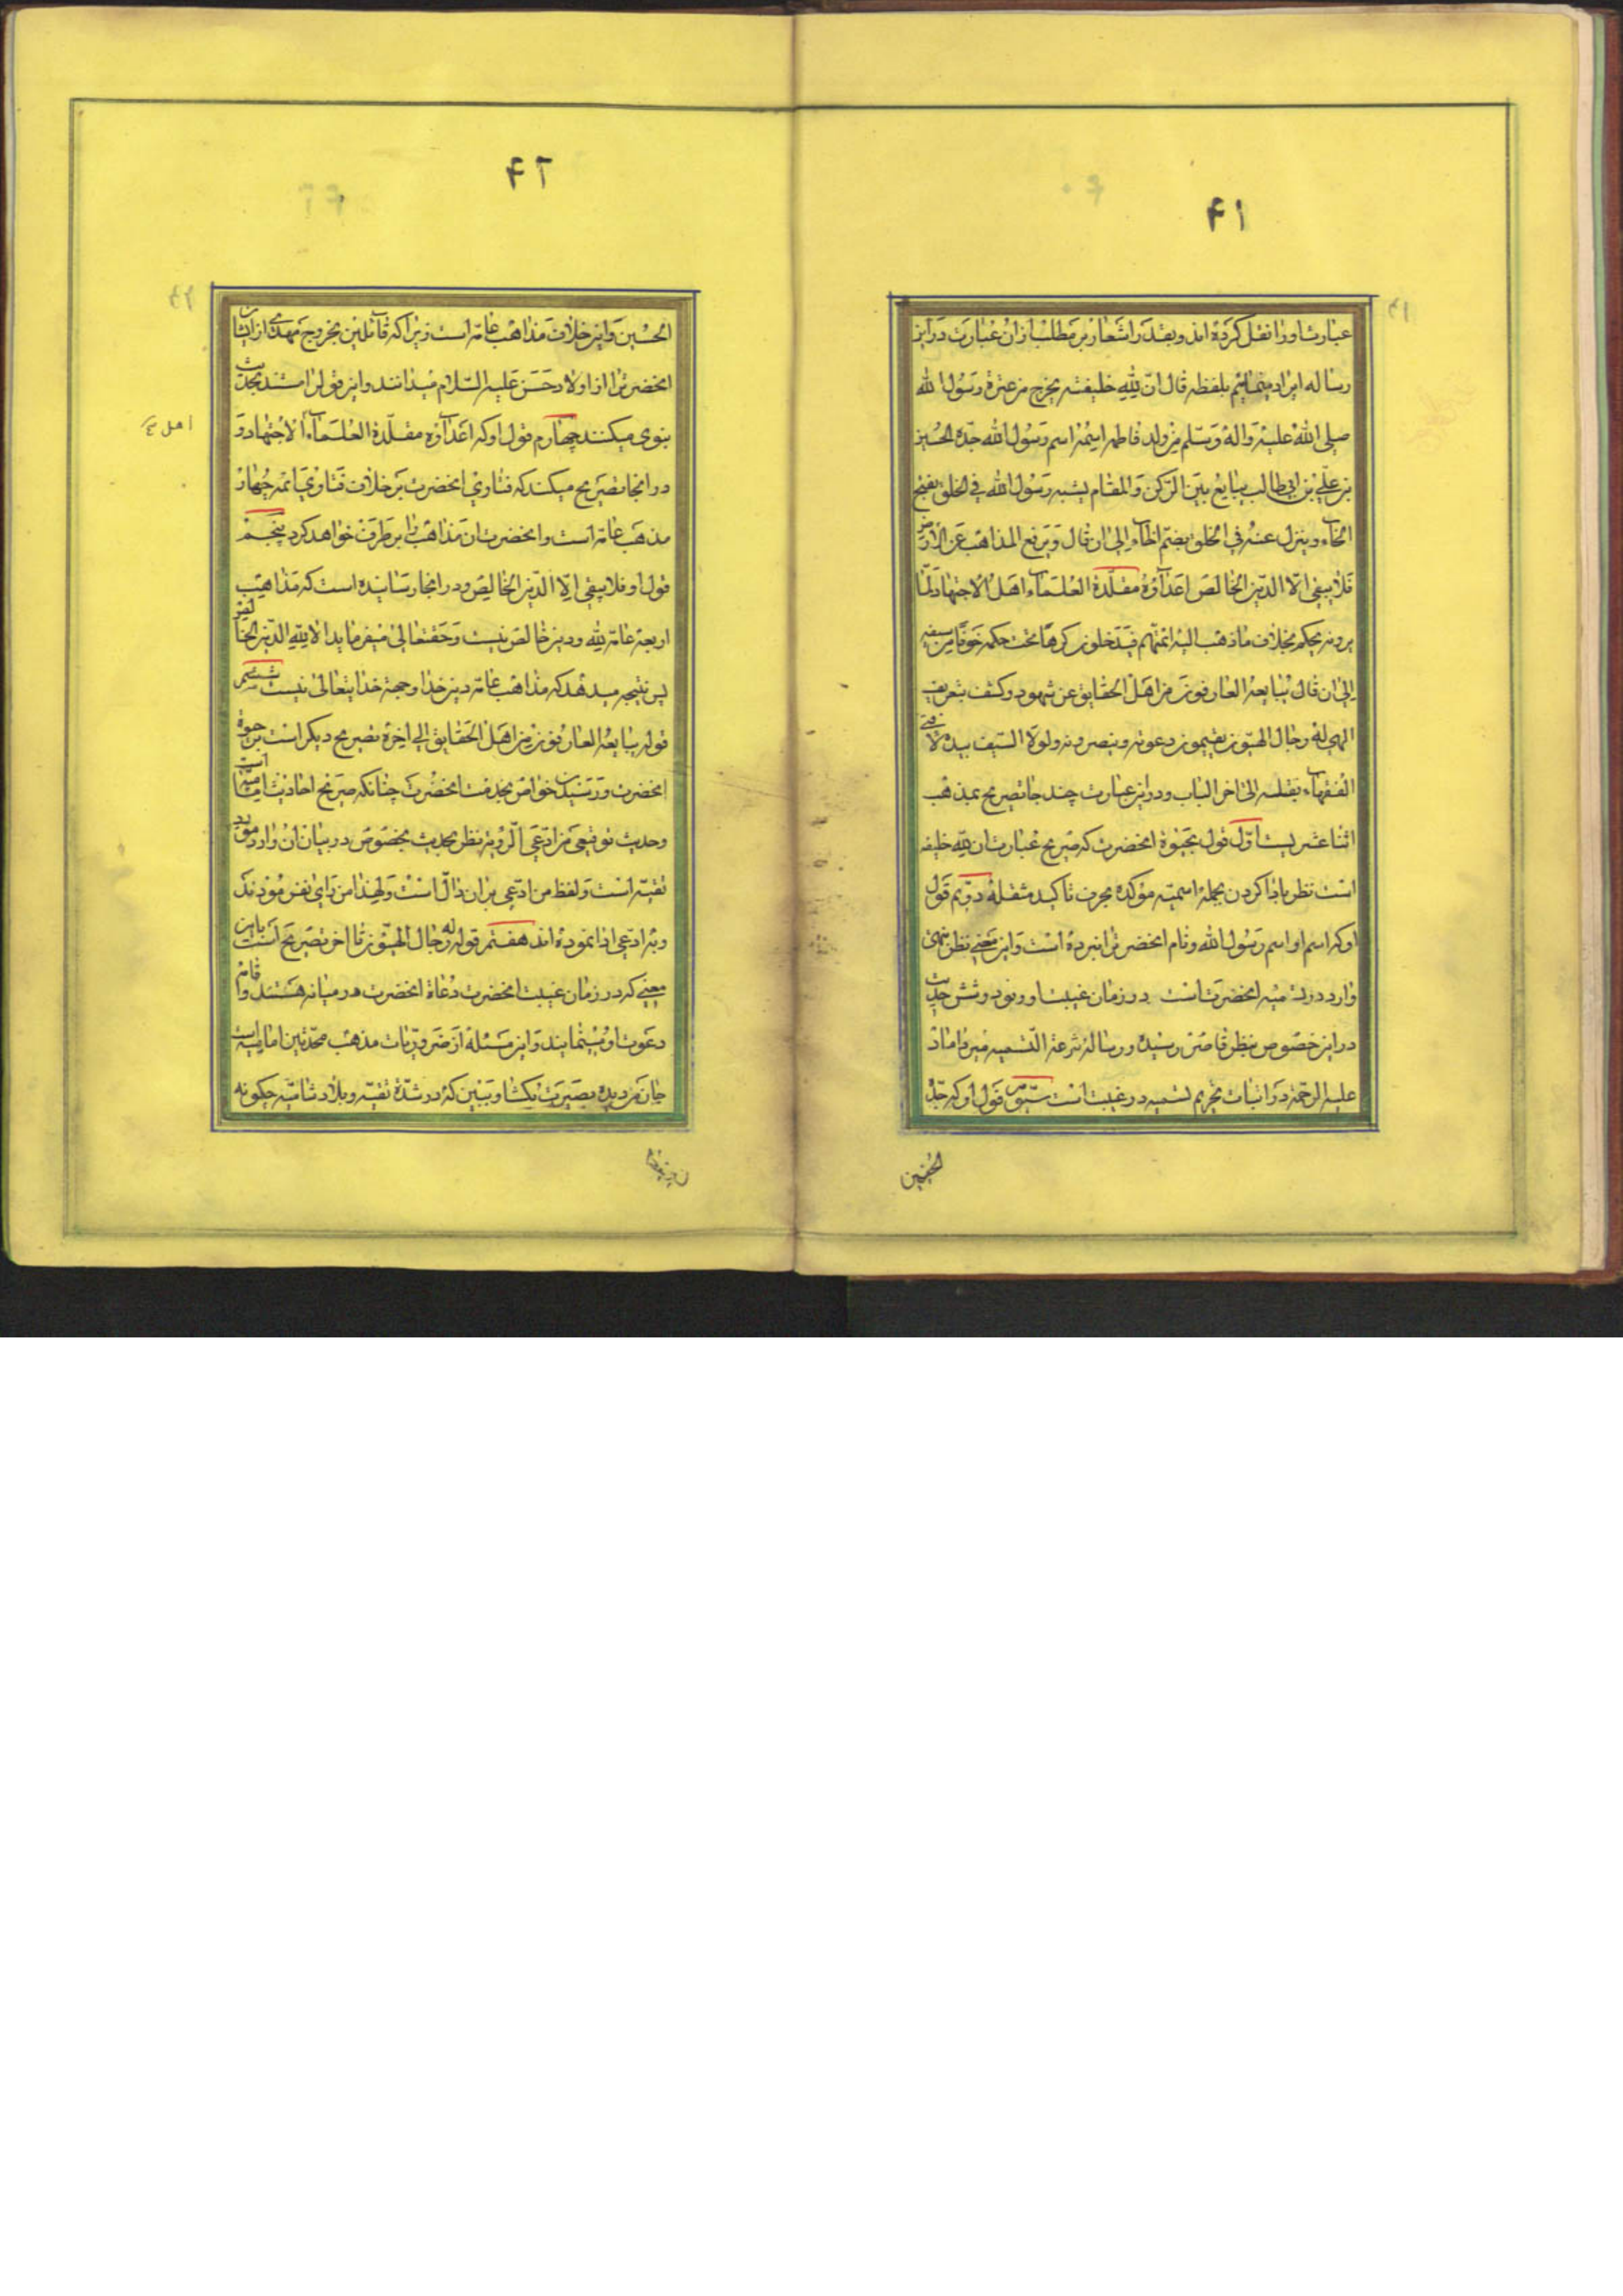 ۴۱
عبارت او را نقل کرده اند و بقدر اشعار بر مطلب از ان عبارت در این
رساله ایراد مینمائیم بلفظه قال انّ لله خلیفته یخرج من عترة رسول الله
صلی الله علیه واله وسلم من ولد فاطمه اسمه اسم رسول الله جدّه الحسین
بن علی بن ابی طالب یبایع بین الرکن والمقام یشبه رسول الله فی الخلق بفتح
الخاء وینزل عنه فی الخلق بضم الخاء الی ان قال ویرفع المذاهب عن الارض
فلا یبقی الا الدین الخالص اعداؤه مقلدة العلماء اهل الاجتهاد لما
یرونه یحکم بخلاف ما ذهب الیه ائمتهم فیدخلون کرها تحت حکمه خوفا من سیفه
الی ان قال یبایعه العارفون من اهل الحقایق عن شهود و کشف بتعریف
الهی له رجال الهیون یقیمون دعوته وینصرونه ولولا السیف بیده لافتی
الفقهاء بقتله الی اخر الباب و در این عبارت چند جا تصریح بمذهب
اثنا عشریست اوّل قول بحیوة انحضرت که صریح عبارت ان لله خلیفه
است نظر بادا کردن بجملهٔ اسمیه مؤکده بحرف تاکید مثقله دویم قول
او که اسم او اسم رسول الله و نام انحضرت را نبرده است و این معنی نظر بنهی
وارد در تسمیه انحضرت است در زمان غیبت او و نود و شش حدیث
در این خصوص بنظر قاصر رسیده و رسالهٔ شرعة التسمیه میر داماد
علیه الرحمة در اثبات تحریم تسمیه در غیبت است سیّوم قول او که جدّه
الحسین
۴۲
الحسین و این خلاف مذاهب عامه است زیرا که قائلین بخروج مهدی از ایشان
انحضرت را از اولاد حسن علیه السلام میدانند و این قول را مستند بحدیث
نبوی میکنند چهارم قول او که اعداؤه مقلدة العلماء الاجتهاد و
اهل
در انجا تصریح میکند که فتاوی انحضرت بر خلاف فتاوی ائمه چهار
مذهب عامه است و انحضرت ان مذاهب را بر طرف خواهد کرد پنجم
قول او فلا یبقی الا الدین الخالص و در انجا رسانیده است که مذاهب
اربعهٔ عامه لله و دین خالص نیست و حقتعالی میفرماید الا لله الدین الخالص
پس نتیجه میدهد که مذاهب عامه دین خدا و حجة خدایتعالی نیست ششم
قوله یبایعه العارفون من اهل الحقایق الی اخره تصریح دیگر است بر حیوة
انحضرت و رسیدن خواص بخدمت انحضرت چنانکه صریح احادیث امامیه است
وحدیث توقیعی من ادّعی الرؤیة نظر بحدیث مخصوص در بیان ان وارد مؤید
تقیه است و لفظ من ادعی بر ان دال است و لهذا من رای نفرموده ند
و بر ادعی ادا نموده اند هفتم قوله له رجال الهیون تا اخر تصریح است باین
معنی که در زمان غیبت انحضرت دعاة انحضرت در میانه هستند و اقامه
دعوت او مینمایند و این مسئله از ضروریات مذهب محدثین امامیه است
جان من دیده بصیرت بگشا و ببین که در شدّة تقیه و بلاد شامیه چگونه